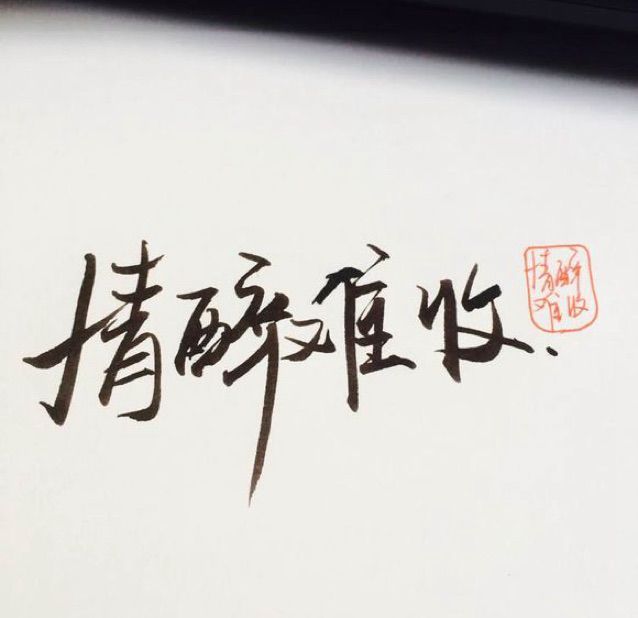 情醉难收.
情醉
难收